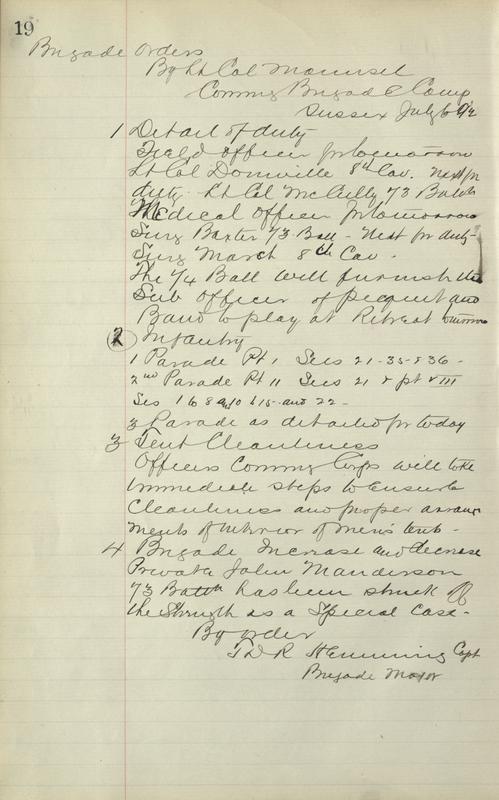 19
Brigade Orders
By Lt Col Maunsel
Commg Brigade Camp
Sussex July 6 92
1 Detail of duty
Field Officer for tomorrow
Lt Col Domville 8th Cav. Next for
duty Lt Col McCully 73 Batn
Medical Officer for tomorrow
Surg Baxter 73 Batt - Next for duty
Surg March 8th Cav -
The 74 Batt will furnish the
Sub Officer of picquet and
Band to play at Retreat tomorrow
2 Infantry
1 Parade Pt 1 Secs 21-35 & 36 -
2nd Parade Pt II Secs 21 & pt VIII
Ses 1 6 8 10 & 15 and 22 -
3 Parade as detailed for today
3 Tent Cleanliness
Officers Commg Corps will take
immediate steps to ensure
cleanliness and proper arrange
ments of interior of men's tents -
4 Brigade Increase and decrease
Private John Manderson
73 Battn has been struck off
the Strength as a Special Case -
By order
T D R Hemming Capt
Brigade Major